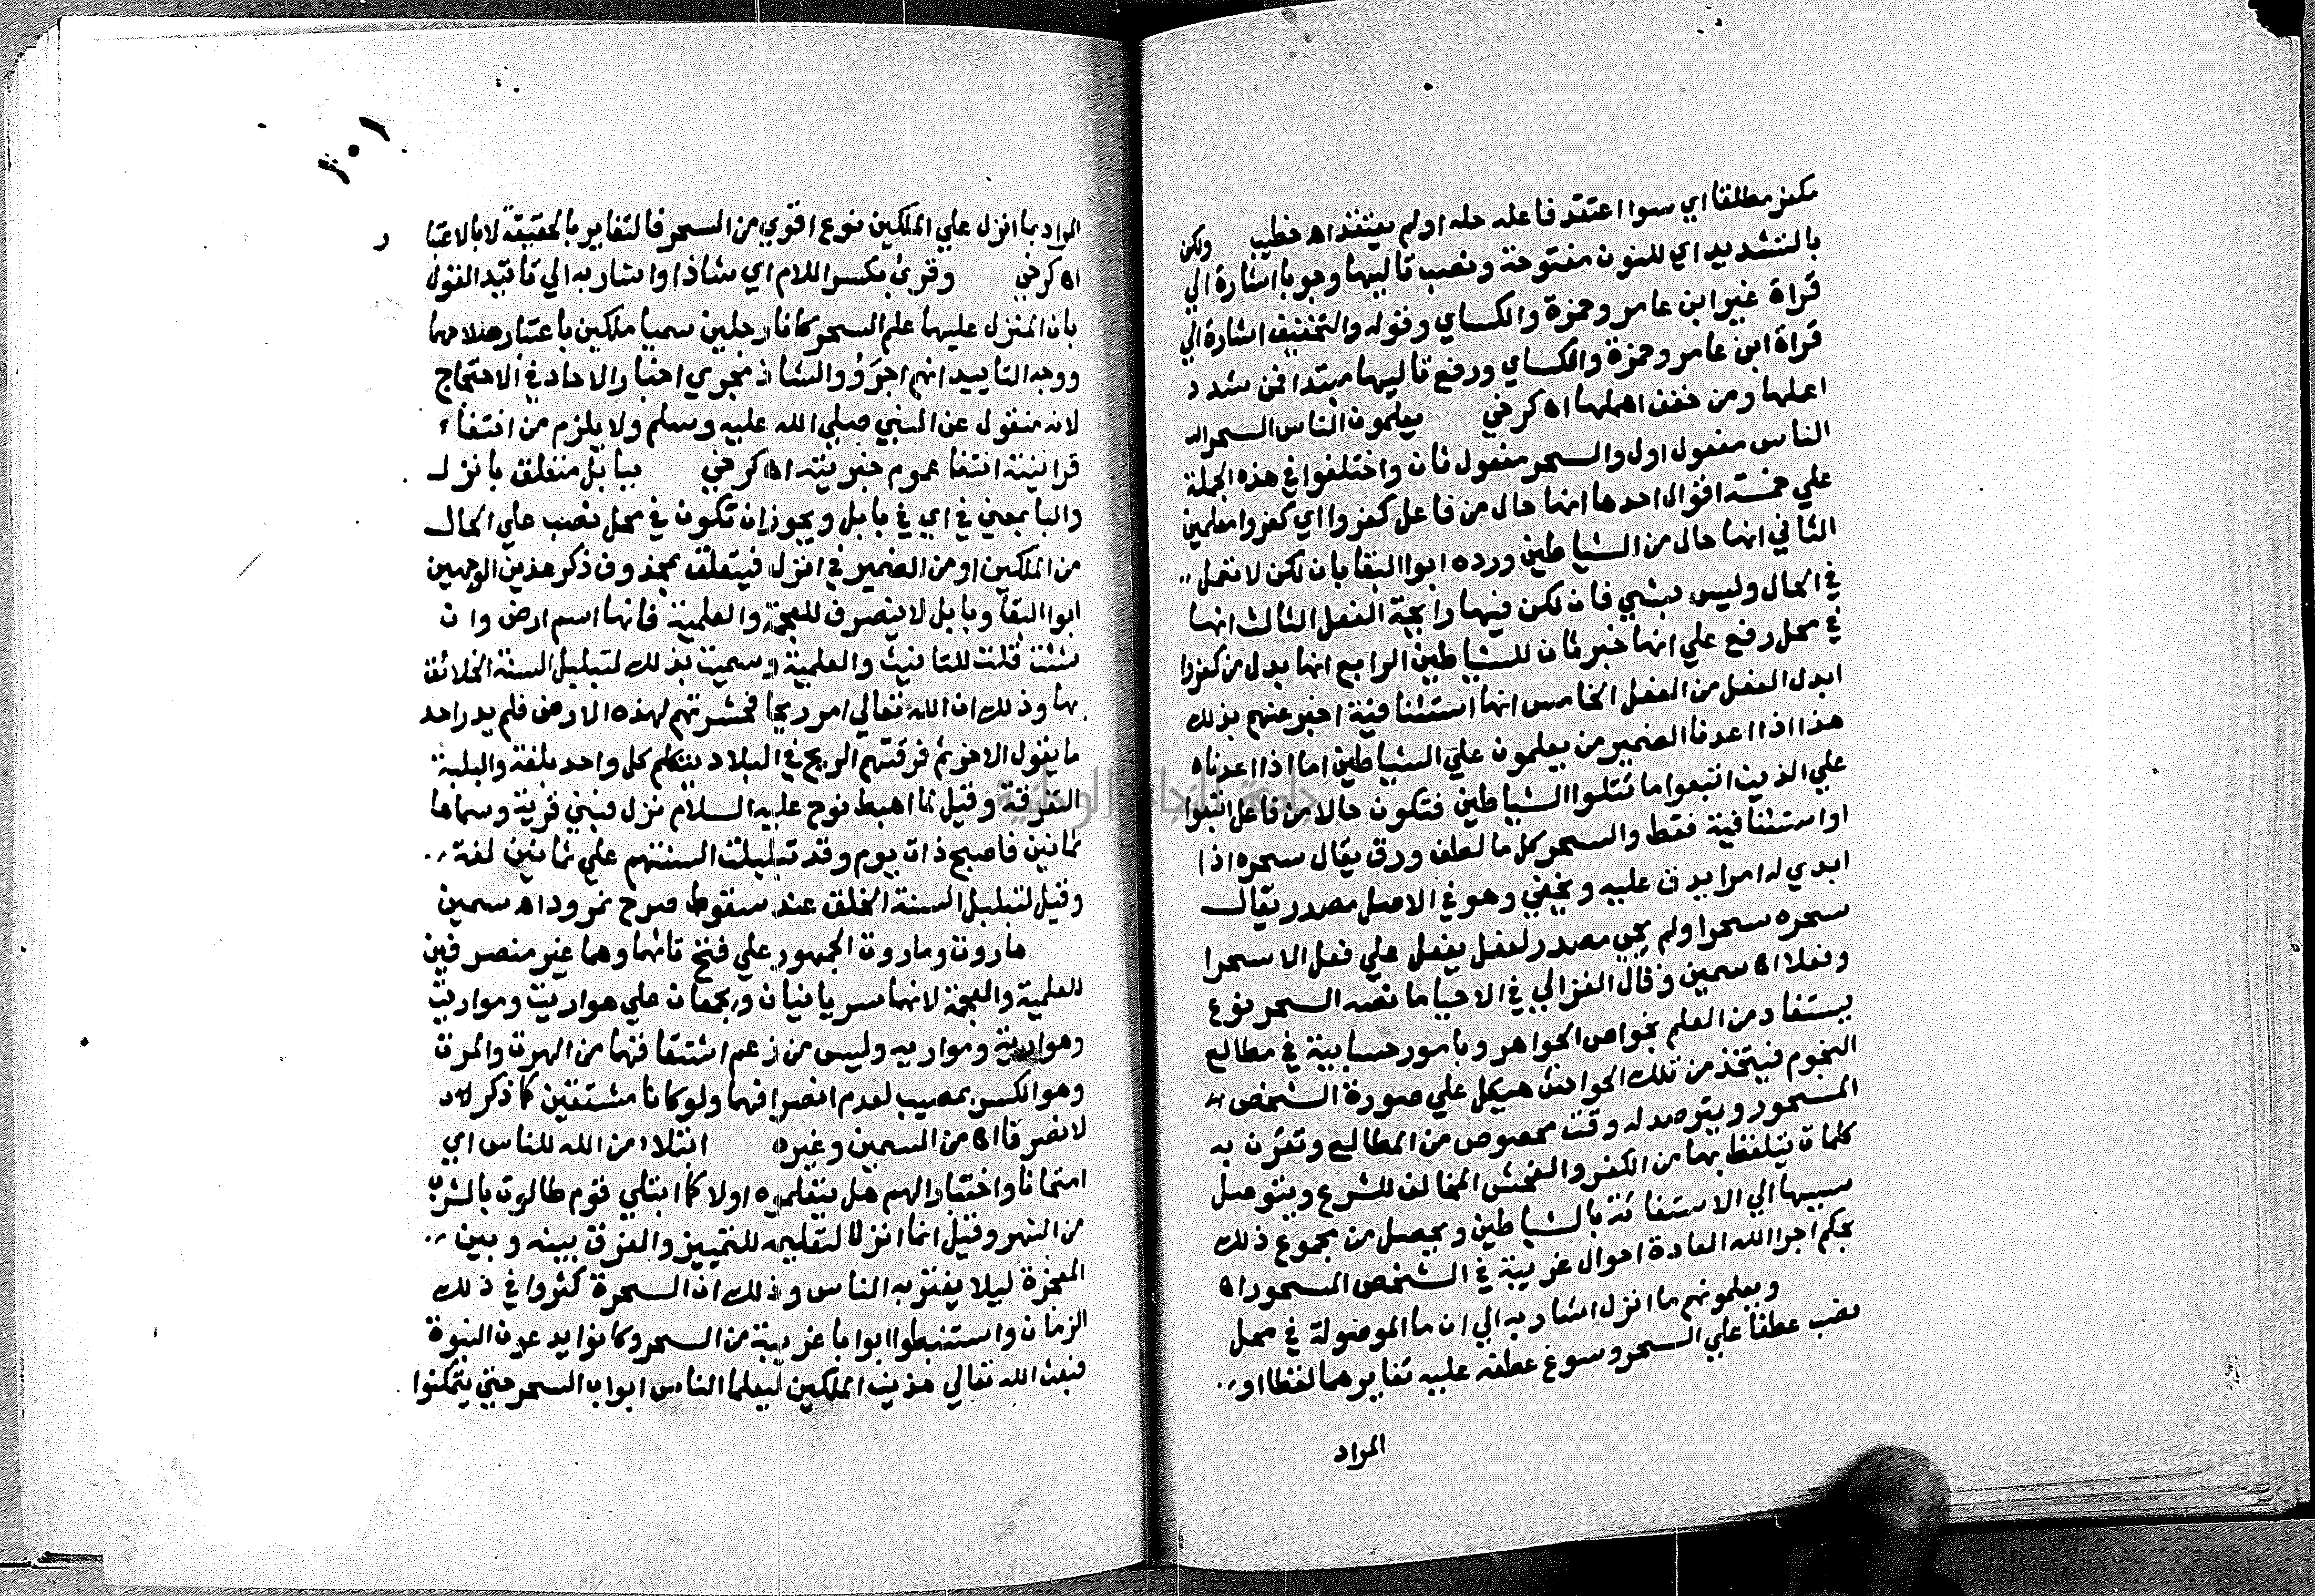 مكفر مطلقا اي سوا اعتقد فاعله حله او لم يعتقد اه خطيب ولكن
بالتشديد اي للنون مفتوحة ونصب تاليها وجوبا اشارة الي
قراة غير ابن عامر وحمزة والكساي وقوله والتخفيف اشارة الي
قراة ابن عامر وحمزة والكساي ورفع تاليها مبتدا فمن شدد
اعملها ومن خفف اهملها اه كرخي يعلمون الناس السحر
الناس مفعول اول والسحر مفعول ثان واختلفوا في هذه الجملة
علي خمسة اقوال احدها انها حال من فاعل كفروا اي كفروا معلمين
الثاني انها حال من الشياطين ورده ابوا البقا بان لكن لا تعمل
في الحال وليس بشي فان لكن فيها رايحة الفعل الثالث انها
في محل رفع علي انها خبر ثان للشياطين الرابع انها بدل من كفروا
ابدل الفعل من الفعل الخامس انها استئنافية اخبر عنهم بذلك
هذا اذا اعدنا الضمير من يعلمون علي الشياطين اما اذا اعدناه
علي الذين اتبعوا ما تتلوا الشياطين فتكون حالا من فاعل اتبعوا
او استئنافية فقط والسحر كل ما لطف ودق يقال سحره اذا
ابدي له امرا يدق عليه ويخفي وهو في الاصل مصدر يقال
سحره سحرا ولم يجي مصدر لفعل يفعل علي فعل الا سحرا
وفعلا اه سمين وقال الغزالي في الاحيا ما نصه السحر نوع
يستفاد من العلم بخواص الجواهر وبامور حسابية في مطالع
النجوم فيتخذ من تلك الخواص هيكل علي صورة الشخص
المسحور ويترصد له وقت مخصوص من المطالع وتقرن به
كلمات يتلفظ بها من الكفر والفحش المخالف للشرع ويتوصل
بسببها الي الاستغاثة بالشياطين ويحصل من مجموع ذلك
بحكم اجرا الله العادة احوال غريبة في الشخص المسحور اه
ويعلمونهم ما انزل اشار به الي ان ما الموصولة في محل
نصب عطفا علي السحر وسوغ عطفه عليه تغايرهما لفظا او
المراد
المراد بما انزل علي الملكين نوع اقوي من السحر فالتغاير بالحقيقة لا بالاعتبار
اه كرخي وقرئ بكسر اللام اي شاذا واشار به الي تاييد القول
بان المنزل عليهما علم السحر كانا رجلين سميا ملكين باعتبار صلاحهما
ووجه التاييد انهم اجروا الشاذ مجري اخبار الاحاد في الاحتجاج
لانه منقول عن النبي صلي الله عليه وسلم ولا يلزم من انتفاء
قرانيته انتفا عموم خبريته اه كرخي ببابل متعلق بانزل
والبا بمعني في اي في بابل ويجوز ان تكون في محل نصب علي الحال
من الملكين او من الضمير في انزل فيتعلق بمحذوف ذكر هذين الوجهين
ابوا البقا وبابل لا ينصرف للعجمة والعلمية فانها اسم ارض وان
شئت قلت للتانيث والعلمية سميت بذلك لتبلبل السنة الخلائق
بها وذلك ان الله تعالي امر ريحا فحشرتهم لهذه الارض فلم يدر احد
ما يقول الاخر ثم فرقتهم الريح في البلاد يتكلم كل واحد بلغة والبلبلة
التفرقة وقيل لما اهبط نوح عليه السلام نزل فبني قرية وسماها
ثمانين فاصبح ذات يوم وقد تبلبلت السنتهم علي ثمانين لغة
وقيل لتبلبل السنة الخلق عند سقوط صرح نمرود اه سمين
هاروت وماروت الجمهور علي فتح تائهما وهما غير منصرفين
للعلمية والعجمة لانهما سريانيان ويجمعان علي هواريت ومواريت
وهوارية وموارية وليس من زعم اشتقاقهما من الهرت والمرت
وهو الكسر بمصيب لعدم انصرافهما ولو كانا مشتقين كما ذكر
لانصرفا اه من السمين وغيره ابتلاء من الله للناس اي
امتحانا واختبارا لهم هل يتعلموه اولا كما ابتلي قوم طالوت بالشرب
من النهر وقيل انما انزلا لتعليمه للتمييز والفرق بينه وبين
المعجزة ليلا يغتر به الناس وذلك ان السحرة كثروا في ذلك
الزمان واستنبطوا ابوابا غريبة من السحر وكانوا يدعون النبوة
فبعث الله تعالي هذين الملكين ليعلما الناس ابواب السحر حتي يتمكنوا